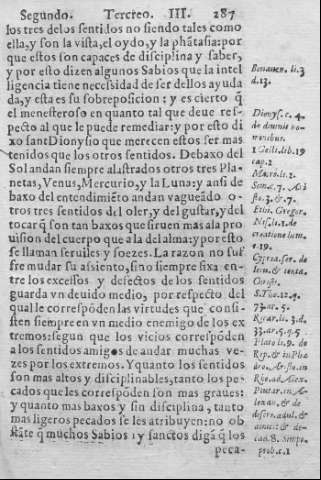 Segundo. Tercreo. III. 287
los tres delos sentidos no siendo tales como
ella, y son la vista, el oydo, y la phãtasia: por
que estos son capaces de disciplina y saber,
y por esto dizen algunos Sabios que la intel
ligencia tiene necessidad de ser dellos ayuda
da, y esta es su sobreposicion: y es cierto q̃
el menesteroso en quanto tal deue res-
pecto al que le puede remediar: y por esto di
xo sant Dionysio que merecen estos ser mas
tenidos que los otros sentidos. Debaxo del
Sol andan siempre alastrados otros tres Pla-
netas, Venus, Mercurio, y la Luna: y ansi de
baxo del entendimiẽto andan vagueãdo o-
tros tres sentidos del oler, y del gustar, y del
tocar q̃ son tan baxos que siruen mas ala pro
uision del cuerpo que a la del alma: y por esto
se llaman seruiles y soezes. La razon no suf
fre mudar su assiento, sino siempre fixa en-
tre los excessos y defectos de los sentidos
guarda vn deuido medio, por respecto del
qual le correspõden las virtudes que consi-
sten siempre en vn medio enemigo de los ex
tremos: segun que los vicios correspõden
a los sentidos amigos de andar muchas ve-
zes por los extremos. Y quanto los sentidos
son mas altos y disciplinables, tanto los pe-
cados que les correspõden son mas graues:
y quanto mas baxos y sin disciplina, tanto
mas ligeros pecados se les atribuyen: no ob
stãte q̃ muchos Sabios y sanctos digã q̃ los
peca-
Bonauen. li. 3
d. 13.
Dionys. c. 4.
de diuinis no
minibus.
Gelli. lib. 19
cap. 2
Macro. li. 2.
Sat. c. 7. Ari
sto. 3. & 7.
Ethi. Gregor.
Nis. li. 1. de
creatione hom.
c. 19.
S. Tho. 12. q.
77. ar. 5.
Ricar. li. 3. d.
33. ar. 5. q. 5
Plato li. 9. de
Rep. & in Phe
dro.
Plutar. in A-
cap. 8.
prob. c. 1